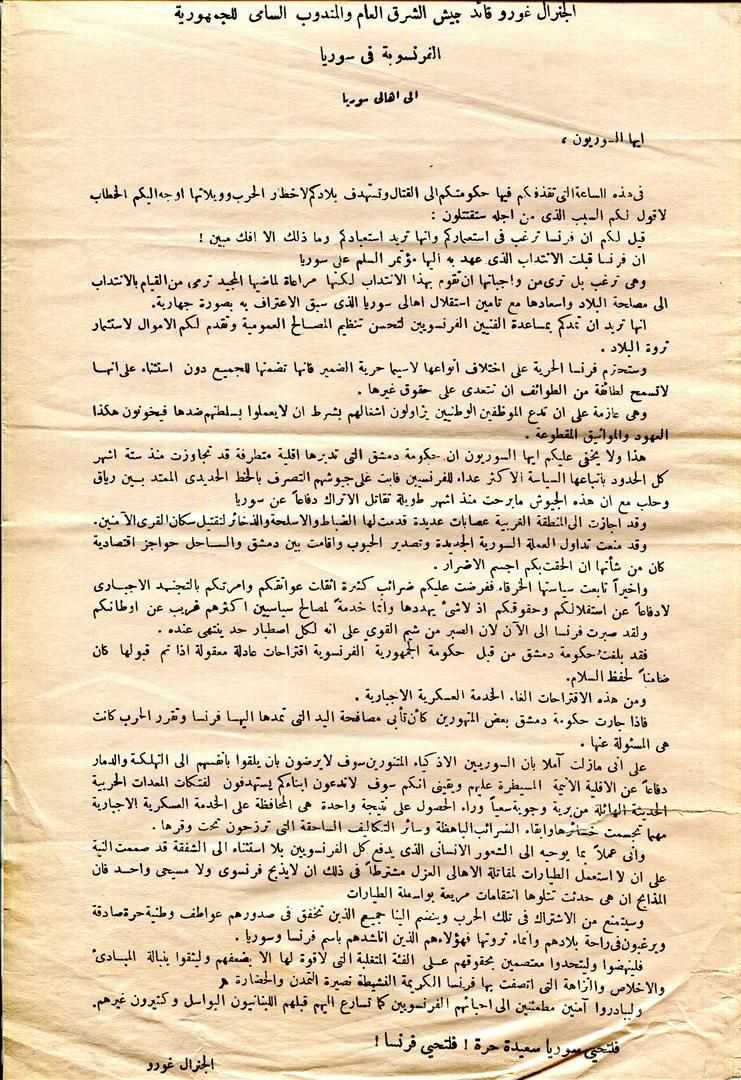 الجنرال غورو قائد جيش الشرق العام والمندوب السامى للجمهورية
الفرنسوية فى سوريا
الى اهالى سوريا
ايها السوريون ،
فى هذه الساعة التى تقذفكم فيها حكومتكم الى القتال وتستهدف بلادكم لاخطار الحرب وويلاتها اوجه اليكم الخطاب
لاقول لكم السبب الذى من اجله ستقتتلون :
قيل لكم ان فرنسا ترغب فى استعماركم وانها تريد استعبادكم وما ذلك الا افك مبين !
ان فرنسا قبلت الانتداب الذى عهد به اليها مؤتمر السلم على سوريا
وهى ترغب بل ترى من واجباتها ان تقوم بهذا الانتداب لكنها مراعاة لماضيها المجيد ترمى من القيام بالانتداب
الى مصلحة البلاد واسعادها مع تامين استقلال اهالى سوريا الذى سبق الاعتراف به بصورة جهارية.
انها تريد ان تمدكم بمساعدة الفنيين الفرنسويين لتحسن تنظيم المصالح العمومية وتقدم لكم الاموال لاستثمار
ثروة البلاد .
وستحترم فرنسا الحرية على اختلاف أنواعها لاسيما حرية الضمير فانها تضمنها للجميع دون استثناء على انها
لاتسمح لطائفة من الطوائف ان تتعدى على حقوق غيرها .
وهى عازمة على ان تدع الموظفين الوطنيين يزاولون اشغالهم بشرط ان لا يعملوا بسلطتهم ضدها فيخونون هكذا
العهود والمواثيق المقطوعة .
هذا ولا يخفى عليكم ايها السوريون ان حكومة دمشق التى تديرها اقلية متطرفة قد تجاوزت منذ ستة اشهر
كل الحدود باتباعها السياسة الاكثر عداء للفرنسيين فابت على جيوشهم التصرف بالخط الحديدى الممتد بين رياق
وحلب مع ان هذه الجيوش مابرحت منذ اشهر طويلة تقاتل الاتراك دفاعاً عن سوريا
وقد اجازت الى المنطقة الغربية عصابات عديدة قدمت لها الضباط والاسلحة والذخائر لتقتيل سكان القرى الآمنين.
وقد منعت تداول العملة السورية الجديدة وتصدير الحبوب واقامت بين دمشق والساحل حواجز اقتصادية
كان من شأنها ان الحقت بكم اجسم الاضرار .
واخيراً تابعت سياستها الخرقاء ففرضت عليكم ضرائب كثيرة اثقلت عواتقكم وامرتكم بالتجنيد الاجبارى
لادفاعاً عن استقلالكم وحقوقكم اذ لاشئ يهددها وانما خدمة لمصالح سياسيين اكثرهم غريب عن اوطانكم
ولقد صبرت فرنسا الى الآن لان الصبر من شيم القوى على انه لكل اصطبار حد ينتهى عنده .
فقد بلغت حكومة دمشق من قبل حكومة الجمهورية الفرنسوية اقتراحات عادلة معقولة اذا تم قبولها كان
ضامناً لحفظ السلام.
ومن هذه الاقتراحات الغاء الخدمة العسكرية الاجبارية .
فاذا جارت حكومة دمشق بعض المتهورين كأن تأبى مصافحة اليد التى تمدها اليها فرنسا وتقرر الحرب كانت
هى المسئولة عنها .
على انى مازلت آملا بان السوريين الاذكياء المتنورين سوف لا يرضون بان يلقوا بانفسهم الى التهلكة والدمار
دفاعاً عن الاقلية الاثيمة المسيطرة عليهم ويقينى انكم سوف لاتدعون ابناءكم يستهدفون لفتكات المعدات الحربية
الحديثة الهائلة من برية وجوية سعياً وراء الحصول على نتيجة واحدة هى المحافظة على الخدمة العسكرية الاجبارية
مهما تجسمت خسائرها وإبقاء الضرائب الباهظة وسائر التكاليف الساحقة التى ترزحون تحت وقرها .
وانى عملاً بما يوحيه الى الشعور الانسانى الذى يدفع كل الفرنسويين بلا استثناء الى الشفقة قد صممت النية
على ان لا استعمل الطيارات لمقاتلة الاهالى العزل مشترطاً فى ذلك ان لايذبح فرنسوى ولا مسيحى واحد فان
المذابح ان هى حدثت تتلوها انتقامات مريعة بواسطة الطيارات
وسيمتنع من الاشتراك فى تلك الحرب وينضم الينا جميع الذين تخفق فى صدورهم عواطف وطنية حرة صادقة
ويرغبون فى راحة بلادهم وانماء ثروتها فهؤلاء هم الذين اناشدهم باسم فرنسا وسوريا .
فلينهضوا وليتحدوا معتصمين بحقوقهم على الفئة المتغلبة التى لاقوة لها الا بضعفهم وليثقوا بنبالة المبادئ
والاخلاص والنزاهة التى اتصفت بها فرنسا الكريمة النشيطة نصيرة التمدن والحضارة
وليبادروا آمنين مطمئنين الى احبائهم الفرنسويين كما تسارع اليهم قبلهم اللبنانيون البواسل وكثيرون غيرهم.
فلتحيى سوريا سعيدة حرة ! فلتحيى فرنسا !
الجنرال غورو